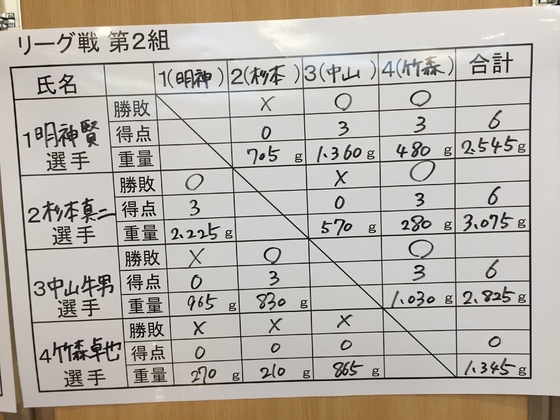 リーグ戦 第2組
氏名 1(明神) 2(杉本) 3(中山) 4(竹森) 合計
1明神賢選手 勝敗 X O O
得点 0 3 3 6
重量 705g 1.360g 480g 2.545g
2杉本真二選手 勝敗 O X O
得点 3 0 3 6
重量 2.225g 570g 280g 3.075g
3中山牛男選手 勝敗 X O O
得点 0 3 3 6
重量 965g 830g 1.030g 2.825g
4竹森卓也選手 勝敗 X X X
得点 0 0 0 0
重量 270g 210g 865g 1.345g